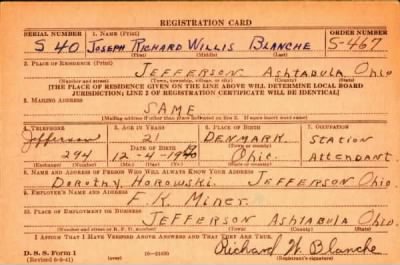 REGISTRATION CARD
SERIAL NUMBER 1. NAME (Print) ORDER NUMBER
S 40 JOSEPH RICHARD WILLIS BLANCHE S-467
(First) (Middle) (Last)
2. PLACE OF RESIDENCE (Print)
JEFFERSON Ashtabula Ohio
(Number and street) (Town, township, village, or city) (County) (State)
[THE PLACE OF RESIDENCE GIVEN ON THE LINE ABOVE WILL DETERMINE LOCAL BOARD
JURISDICTION; LINE 2 OF REGISTRATION CERTIFICATE WILL BE IDENTICAL]
3. MAILING ADDRESS
SAME
[Mailing address if other than place indicated on line 2. If same insert word same]
4. TELEPHONE 5. AGE IN YEARS 6. PLACE OF BIRTH 7. OCCUPATION
Jefferson 21 DENMARK STATION
DATE OF BIRTH
294 12-4-19 Ohio. ATTENDANT.
(Exchange) (Number) (Mo.) (Day) (Yr.) (Town or county) (State or country)
8. NAME AND ADDRESS OF PERSON WHO WILL ALWAYS KNOW YOUR ADDRESS
Dorothy Horowski. JEFFERSON Ohio.
9. EMPLOYER'S NAME AND ADDRESS
F. K. Miner.
10. PLACE OF EMPLOYMENT OR BUSINESS
JEFFERSON ASHTABULA Ohio.
(Number and street or R. F. D. number) (Town) (County) (State)
I AFFIRM THAT I HAVE VERIFIED ABOVE ANSWERS AND THAT THEY ARE TRUE.
D. S. S. Form 1
(Revised 6-9-41) (over) Richard W. Blanche
(Registrant's signature)